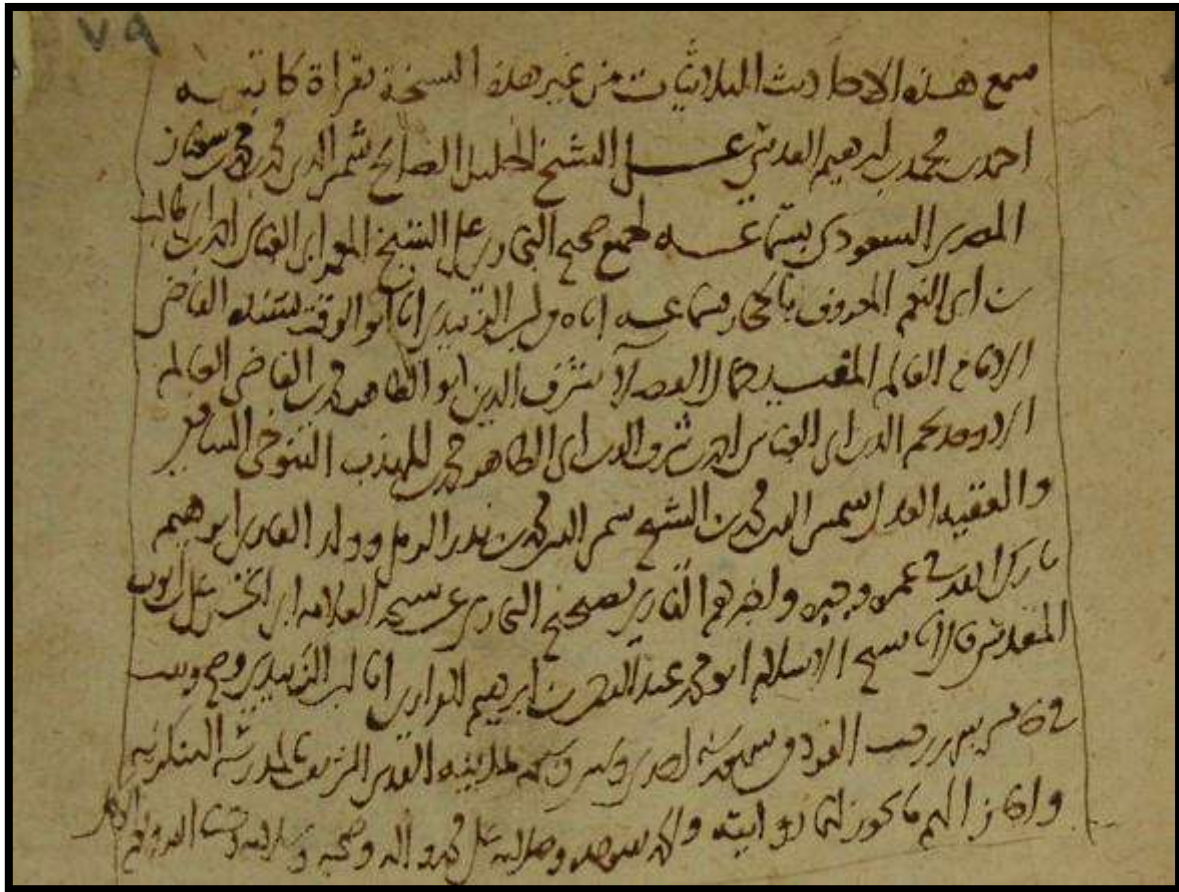 ٧٩
سمع هذه الاحاديث الثلاثيات من غير هذه النسخة بقراة كاتبه
احمد بن محمد بن ابرهيم المقدسي على الشيخ الجليل الصالح شمس الدين محمد بن محمد بن
المصري السعودي بسماعه لجميع صحيح البخاري على الشيخ المعمر ابي العباس احمد بن ابي طالب
بن ابي النعم المعروف بالحجار بسماعه اياه من ابن الزبيدي انا ابو الوقت بسنده القاضي
الامام العالم المفيد جمال شرف الدين ابو الطاهر محمد بن القاضي العالم
الاوحد نجم الدين ابي العباس احمد بن شرف الدين ابي الطاهر محمد بن المهذب التنوخي الشافعي
والفقيه العدل شمس الدين محمد بن الشيخ شمس الدين محمد بن بدر وولد القاري ابرهيم
واخبرهم القاري بصحيح البخاري عن شيخه العلامة ابي الحسن علي بن ايوب
المقدسي قال انا شيخ الاسلام ابو محمد عبد الرحمن بن ابرهيم الفزاري انا ابن الزبيدي وصح وثبت
في رجب الفرد من شهور سنة احدى وستين وسبعمائة بمدينة القدس الشريف بالمدرسة التنكزية
واجاز لهم ما يجوز له روايته والحمد لله وحده وصلى الله على محمد واله وصحبه وسلم وحسبنا الله ونعم الوكيل